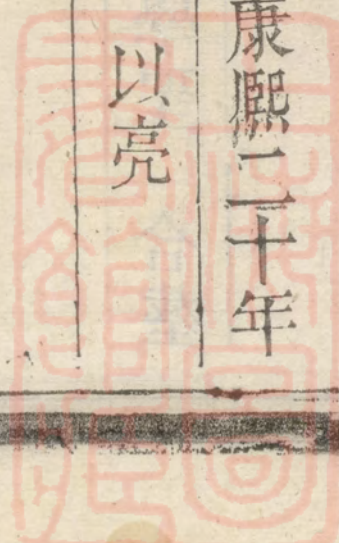 康熙二十年
以亮